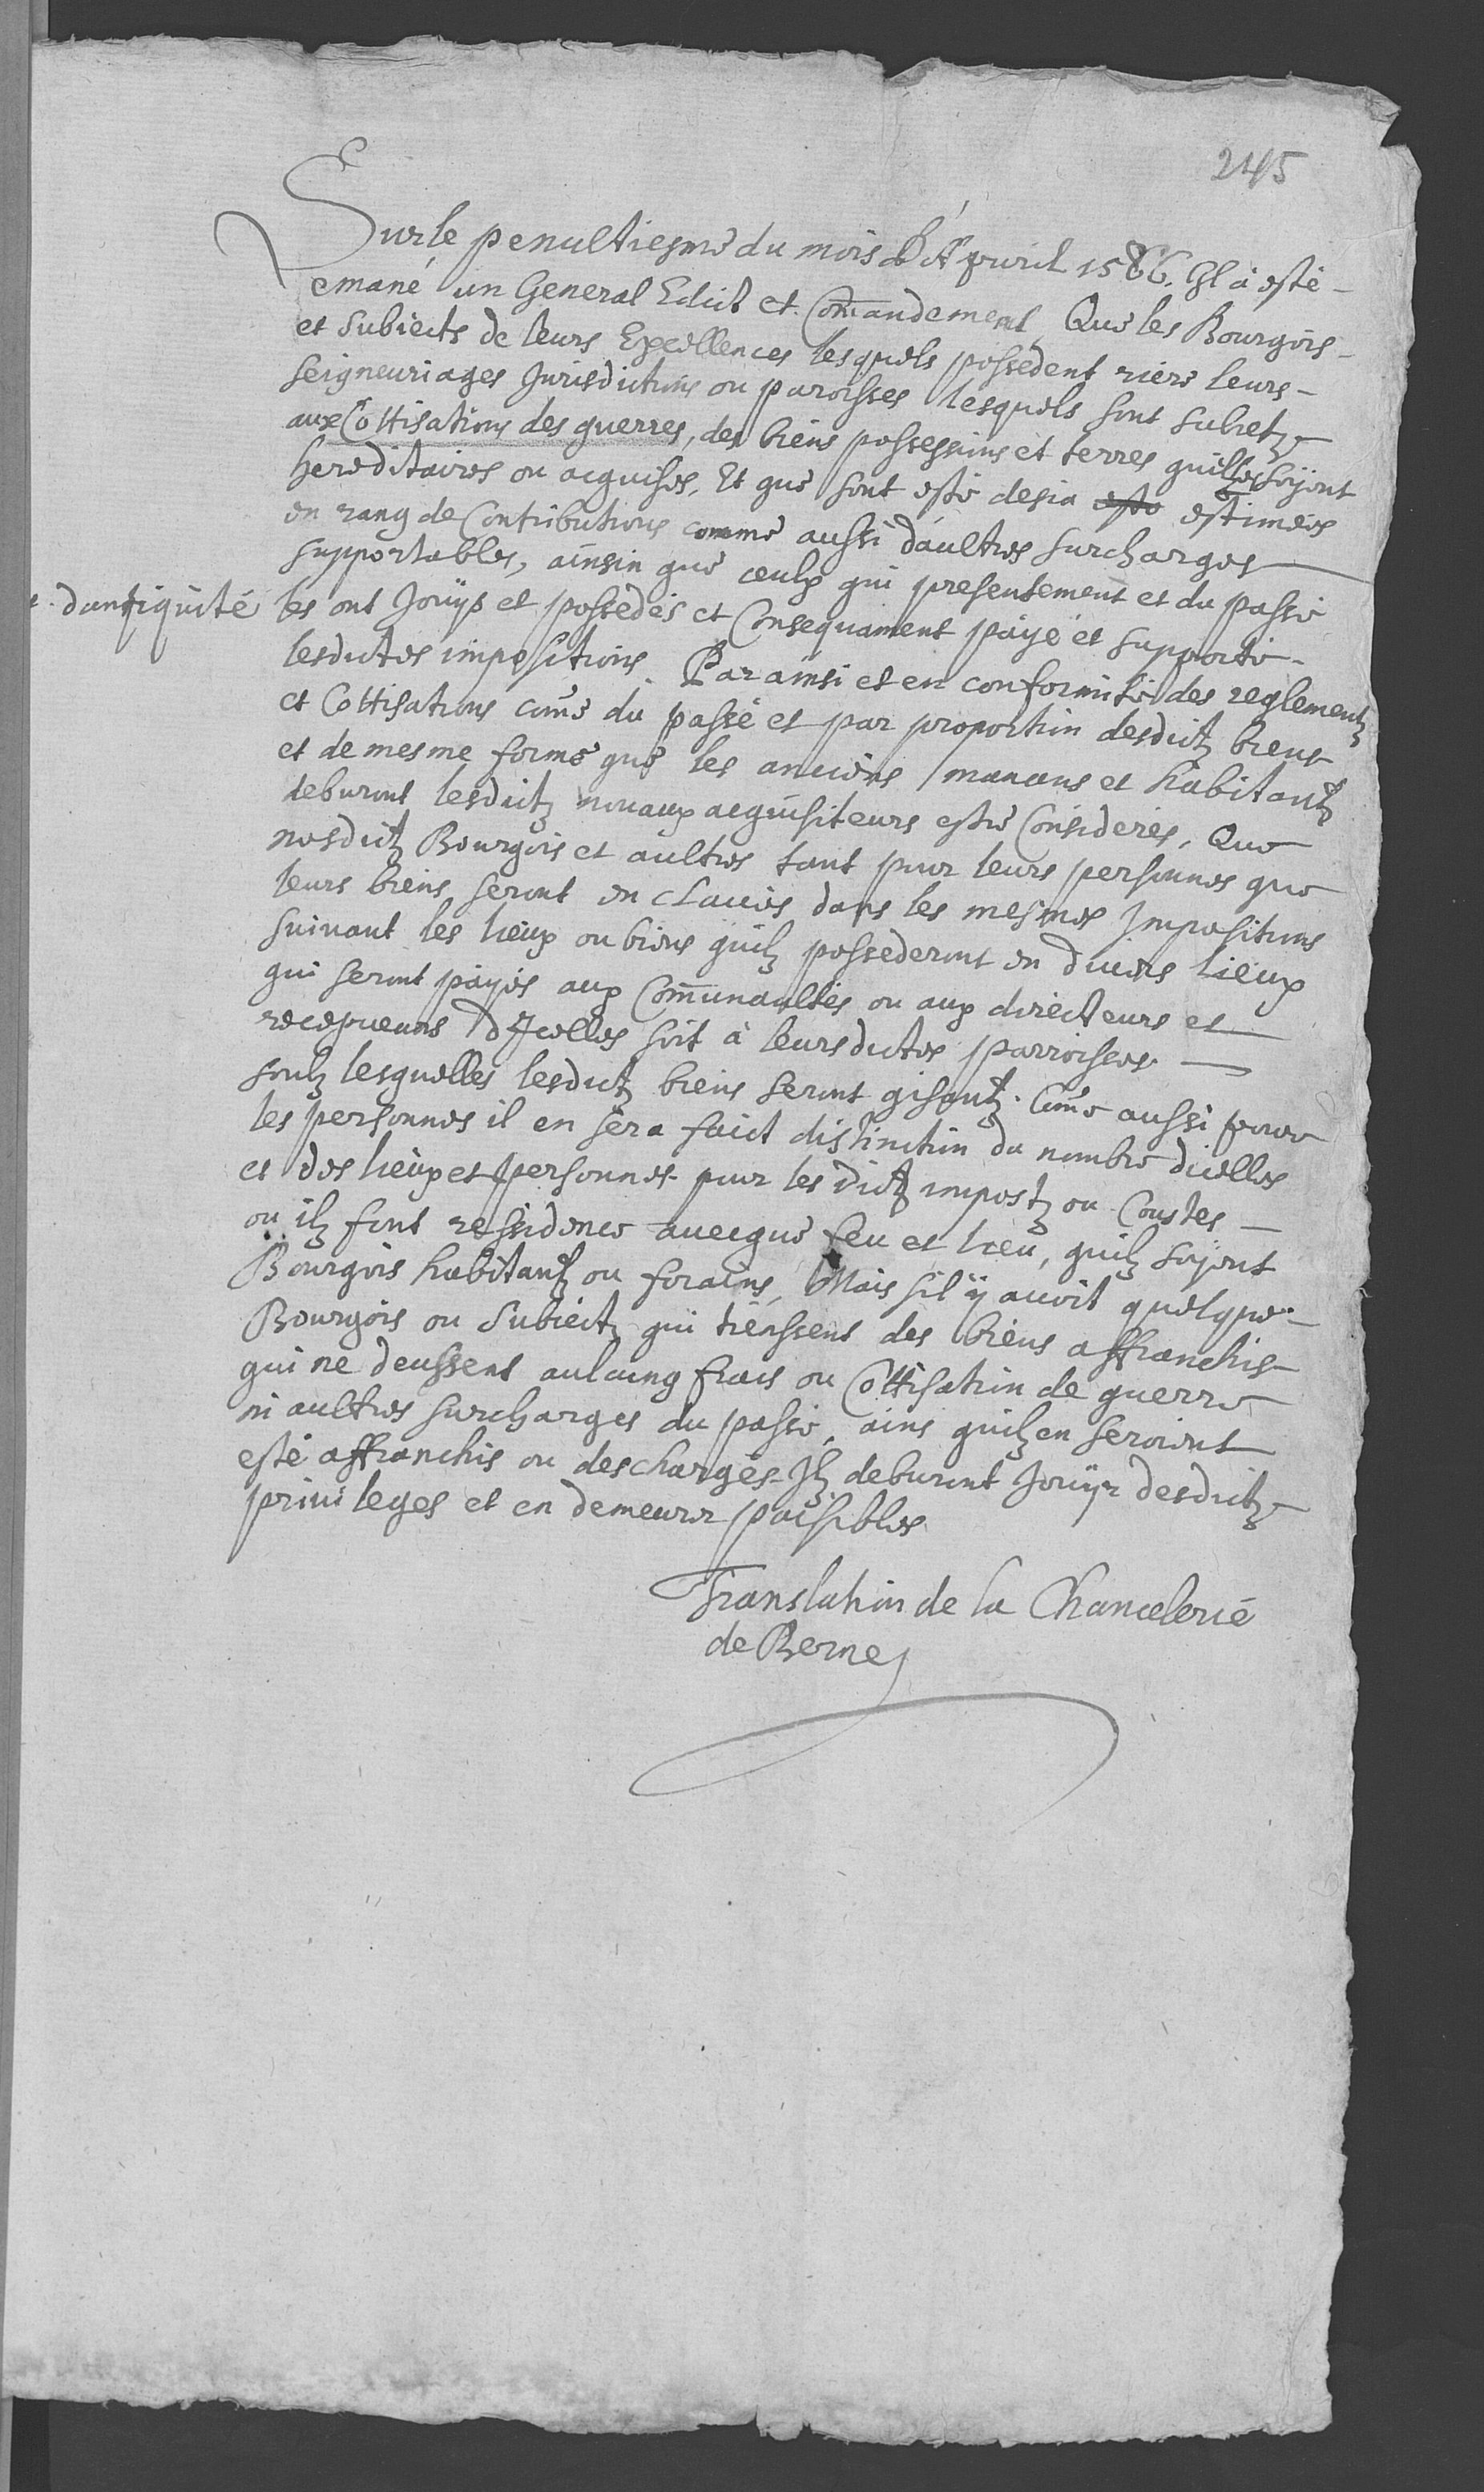 245
Sur le penultiesme du mois d'Apvril 1586. Il a esté
emané un General Edict et Comandement, Que les Bourgois
et Subiects de leurs Excellences lesquels possedent riere leurs
seigneuriages Jurisdictions ou paroisses lesquels sont subietz
aux Cottisations des guerres, des biens possessions et terres quilles soyent
hereditaires ou acquises, Et que sont esté desia esté estimées
en rang de Contributions comme aussi d'aultres surcharges
supportables, ainsin que ceulx qui presentement et du passé
dantiquité
les ont Jouÿs et possedés et Consequament payé et supporté
lesdictes impositions. Par ainsi et en conformité des reglementz
et Cottisations come du passé et par proportion desdictz biens
et de mesme forme que les anciens manans et habitantz
deburont lesdictz nouaux acquisiteurs estre Considerés, Que
nosdictz Bourgois et aultres tant pour leurs personnes que
leurs biens seront enclaués dans les mesmes Impositions
suiuant les lieux ou biens quilz possederont en diuers lieux
qui seront payés aux Communaultés ou aux directeurs et
recepueurs d'Icelles soit à leursdictes parroisses
soulz lesquelles lesdictz biens seront gisantz. Come aussi pour
les personnes il en sera faict distinction du nombre dicelles
et des lieux et personnes pour les dictz impostz ou Coustes
ou ilz font residence auecque feu et lieu, quilz soyent
Bourgois habitantz ou forains, Mais sil ÿ auoit quelque
Bourgois ou Subiectz qui tienssent des biens affranchis
qui ne deussent aulcung frais ou Cottisation de guerre
ni aultres surcharges du passé, ains quilz en seroient
esté affranchis ou deschargés Ilz deburont Jouÿr desdictz
priuileges et en demeurer paisibles
Translation de la Chancelerie
de Berne